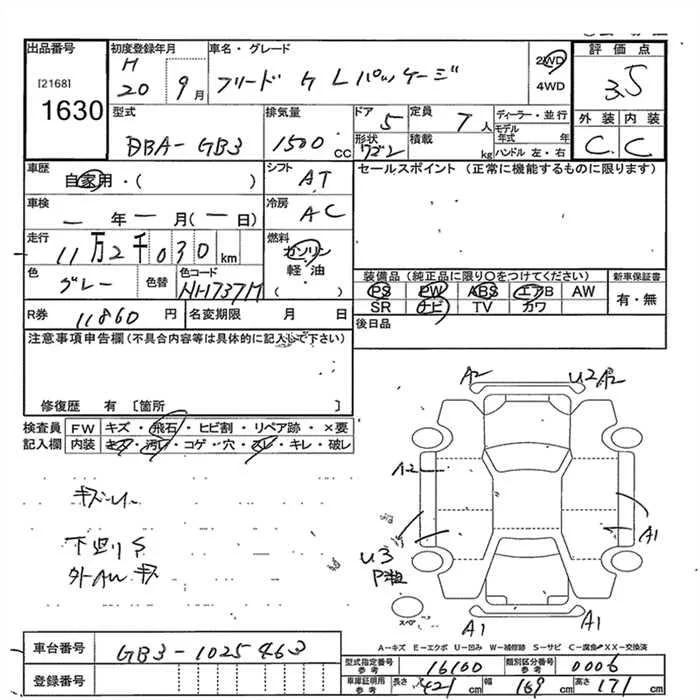 出品番号 初度登録年月 車名・グレード 評価点
[2168] H 20 9月 フリード G Lパッケージ 2WD 4WD 3.5
1630 型式 排気量 ドア 5 定員 7人 ディーラー・並行 外装 内装
DBA-GB3 1500cc 形状 積載 kg モデル年式 年 ハンドル 左・右 C C
車歴 自家用・( ) シフト AT セールスポイント (正常に機能するものに限ります)
車検 一年一月(一日) 冷房 AC
走行 11万2千030km 燃料 ガソリン 軽・油 ( )
色 グレー 色替 色コード NH737M 装備品 (純正品に限り○をつけてください) 新車保証書
PS PW ABS エアB AW 有・無
R券 11860円 名変期限 月 日 SR ナビ TV カワ
注意事項申告欄 (不具合内容等は具体的に記入して下さい) 後日品
修復歴 有 [箇所 ]
検査員 FW キズ・飛石・ヒビ割・リペア跡・×要
記入欄 内装 キズ・汚れ・コゲ・穴・スレ・キレ・破レ
A2 U2 A2
A2
下廻りS
外AWキズ
U3
A1
A1 A1
スペア
A-キズ E-エクボ U-凹み W-補修跡 S-サビ C-腐食 XX-交換済
車台番号 GB3-1025463
登録番号
型式指定番号 参考 16100 類別区分番号 参考 0006
車庫証明用 参考 長さ 421cm 幅 169cm 高さ 171cm